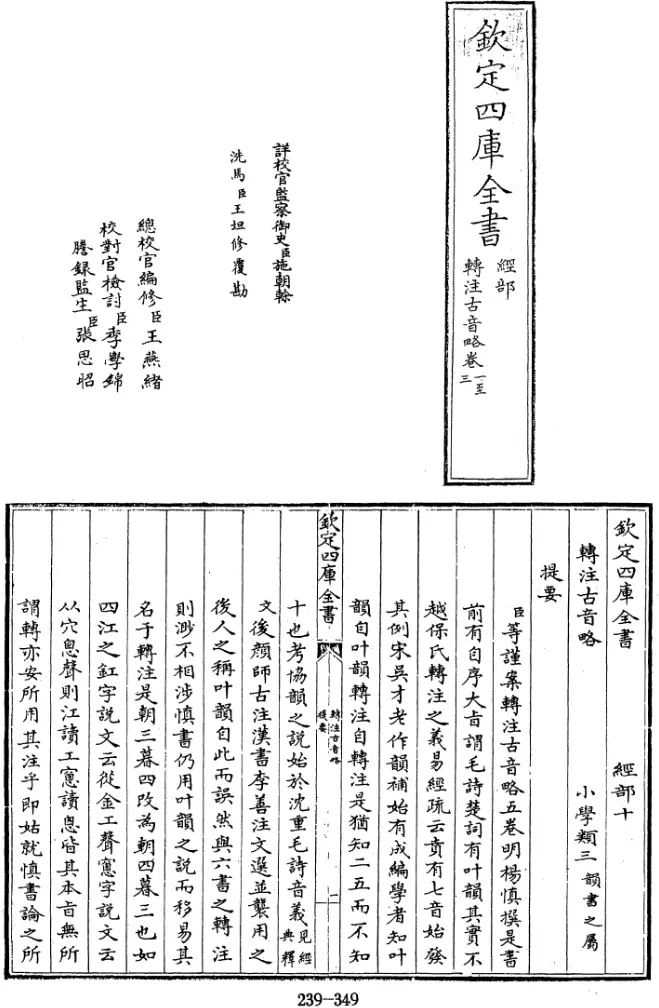 欽定四庫全書
經部
轉注古音略卷一至三
詳校官監察御史臣施朝榦
洗馬臣王坦修覆勘
總校官編修臣王燕緒
校對官檢討臣季學錦
謄錄監生臣張思昭
欽定四庫全書 經部十
轉注古音略 小學類三韻書之屬
提要
臣等謹案轉注古音略五卷明楊慎撰是書
前有自序大㫖謂毛詩楚詞有叶韻其實不
越保氏轉注之義易經疏云賁有七音始發
其例宋吳才老作韻補始有成編學者知叶
韻自叶韻轉注自轉注是猶知二五而不知
欽定四庫全書
轉注古音略
提要
一
十也考協韻之說始於沈重毛詩音義見經典釋
文後顏師古注漢書李善注文選並襲用之
後人之稱叶韻自此而誤然與六書之轉注
則渺不相涉慎書仍用叶韻之說而移易其
名于轉注是朝三暮四改為朝四暮三也如
四江之釭字說文云從金工聲窻字說文云
从穴悤聲則江讀工窻讀悤皆其本音無所
謂轉亦安所用其注乎即姑就慎書論之所
239-349